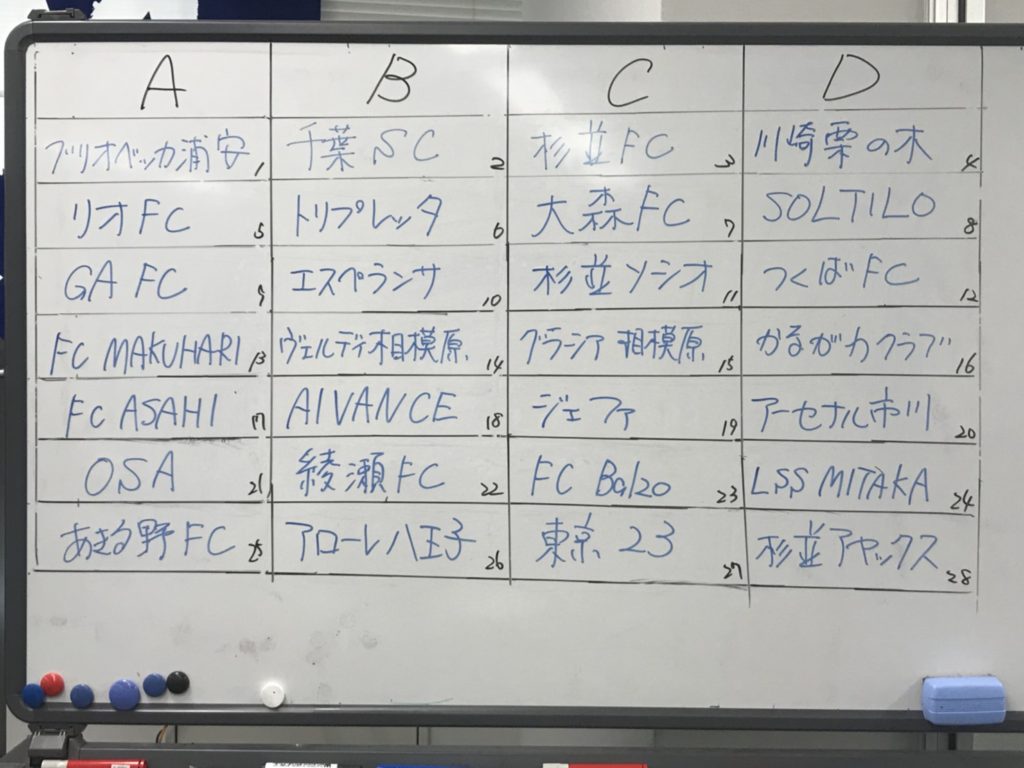 A B C D
ブリオベッカ浦安 1 千葉SC 2 杉並FC 3 川崎栗の木 4
リオFC 5 トリプレッタ 6 大森FC 7 SOLTILO 8
GA FC 9 エスペランサ 10 杉並ソシオ 11 つくばFC 12
FC MAKUHARI 13 ヴェルディ相模原 14 グラシア相模原 15 かるがもクラブ 16
FC ASAHI 17 AIVANCE 18 ジェファ 19 アーセナル市川 20
OSA 21 綾瀬FC 22 FC Balzo 23 LSS MITAKA 24
あきる野FC 25 アローレ八王子 26 東京23 27 杉並アヤックス 28